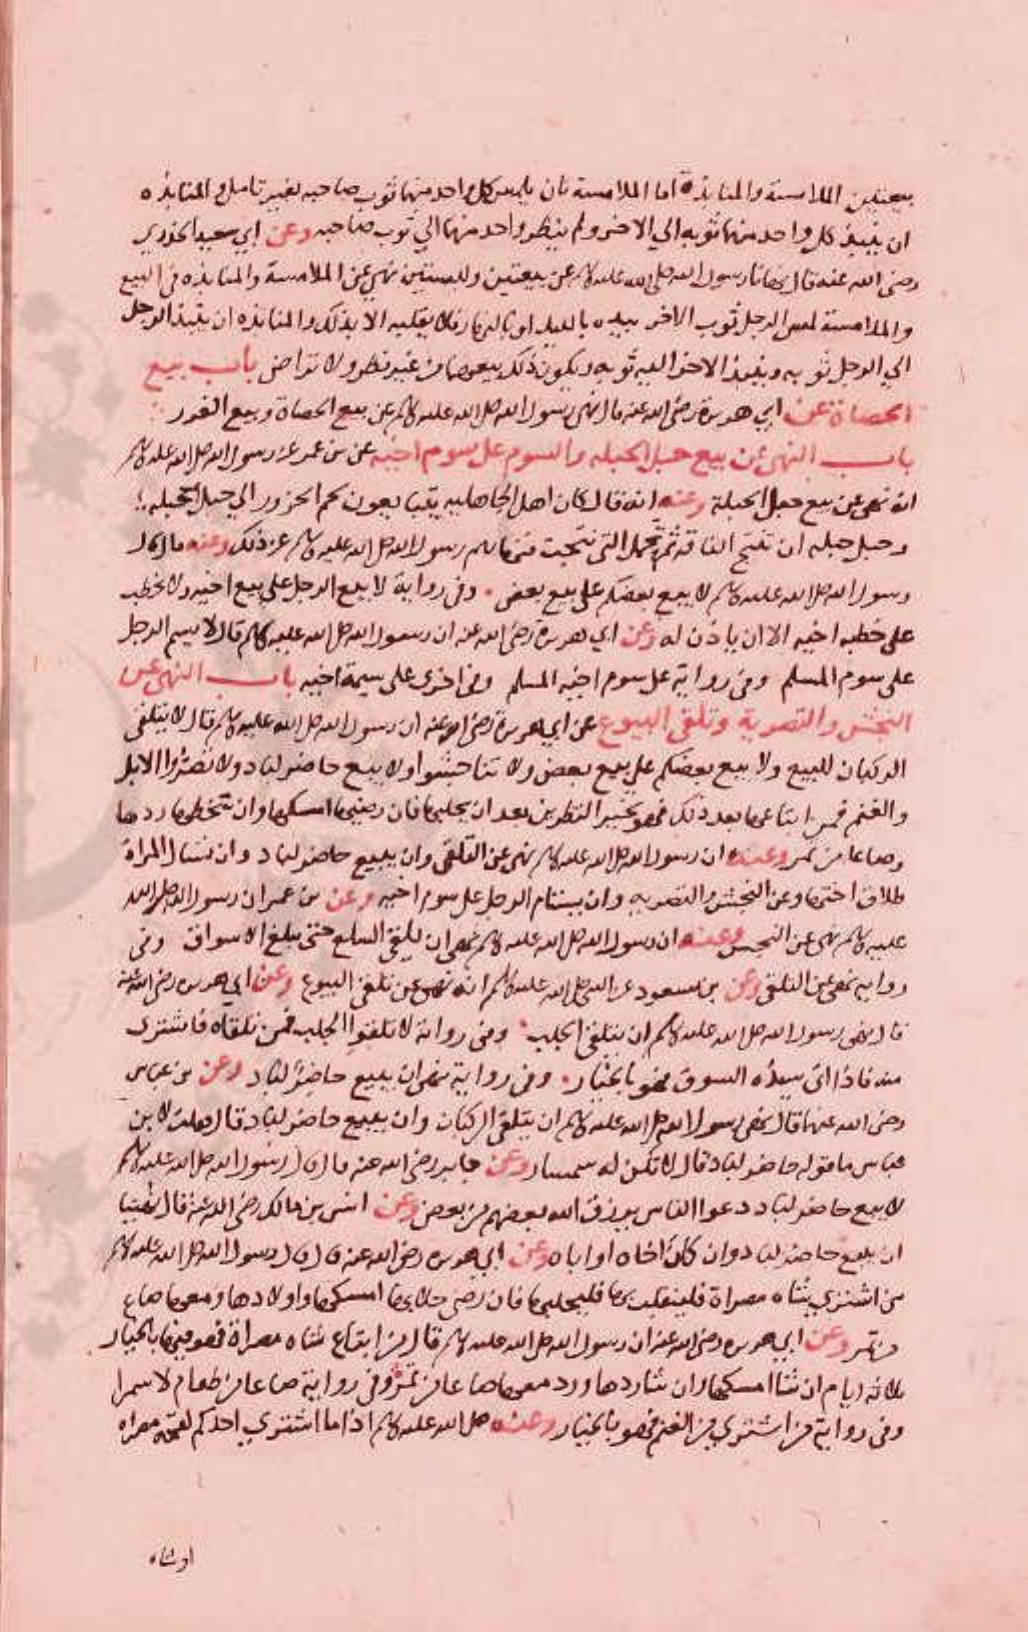 بيعتين الملامسة والمنابذة اما الملامسة بان يلمس كل واحد منهما ثوب صاحبه لغير تامل والمنابذه
ان ينبذ كل واحد منهما ثوبه الي الاخر ولم ينظر واحد منهما الي ثوب صاحبه وعن ابي سعيد الخدري
رضي الله عنه قال نهانا رسول الله صلى الله عليه وسلم عن بيعتين ولبستين نهي عن الملامسة والمنابذه في البيع
والملامسة لمس الرجل ثوب الاخر بيده بالليل او بالنهار ولا يقلبه الا بذلك والمنابذه ان ينبذ الرجل
الي الرجل ثوبه وينبذ الاخر اليه ثوبه ويكون ذلك بيعهما من غير نظر ولا تراض باب بيع
الحصاة عن ابي هريرة رضي الله عنه قال نهى رسول الله صلى الله عليه وسلم عن بيع الحصاة وبيع الغرر
باب النهي عن بيع حبل الحبله والسوم على سوم اخيه عن بن عمر عن رسول الله صلى الله عليه وسلم
انه نهى عن بيع حبل الحبلة وعنه انه قال كان اهل الجاهلية يتبايعون لحم الجزور الي حبل الحبله
وحبل حبله ان تنتج الناقة ثم تحمل التي نتجت فنهاهم رسول الله صلى الله عليه وسلم عن ذلك وعنه قال قال
رسول الله صلى الله عليه وسلم لا يبع بعضكم على بيع بعض . وفي رواية لا يبع الرجل على بيع اخيه ولا يخطب
على خطبه اخيه الا ان ياذن له وعن ابي هريرة رضي الله عنه ان رسول الله صلى الله عليه وسلم قال لا يسم الرجل
على سوم المسلم وفي رواية على سوم اخيه المسلم وفي اخرى على سيمة اخيه باب النهي عن
النجش والتصرية وتلقى البيوع عن ابي هريرة رضي الله عنه ان رسول الله صلى الله عليه وسلم قال لا يتلقى
الركبان للبيع ولا يبع بعضكم على بيع بعض ولا تناجشوا ولا يبع حاضر لباد ولا تصروا الابل
والغنم فمن ابتاعها بعد ذلك فهو بخير النظرين بعد ان يحلبها فان رضيها امسكها وان سخطها ردها
وصاعا من تمر وعنه ان رسول الله صلى الله عليه وسلم نهى عن التلقى وان يبيع حاضر لباد وان تسال المراة
طلاق اختها وعن النجش والتصريه وان يستام الرجل على سوم اخيه وعن بن عمر ان رسول الله صلى الله
عليه وسلم نهى عن النجش وعنه ان رسول الله صلى الله عليه وسلم نهى ان يلقى السلع حتى يبلغ الاسواق وفي
روايه نهى عن التلقى وعن بن مسعود عن النبي صلى الله عليه وسلم انه نهى عن تلقى البيوع وعن ابي هريره رضي الله عنه
قال نهى رسول الله صلى الله عليه وسلم ان يتلقى الجلب . وفي رواية لا تلقوا الجلب فمن تلقاه فاشترى
منه فاذا اتى سيده السوق فهو بالخيار . وفي رواية نهى ان يبيع حاضر لباد وعن بن عباس
رضي الله عنهما قال نهى رسول الله صلى الله عليه وسلم ان يتلقى الركبان وان يبيع حاضر لباد قال فقلت لابن
عباس ما قوله حاضر لباد قال لا تكن له سمسار وعن جابر رضي الله عنه قال قال رسول الله صلى الله عليه وسلم
لا يبع حاضر لباد دعوا الناس يرزق الله بعضهم من بعض وعن انس بن مالك رضي الله عنه قال نهينا
ان يبيع حاضر لباد وان كان اخاه او اباه وعن ابي هريره رضي الله عنه قال قال رسول الله صلى الله عليه وسلم
من اشتري شاه مصراة فلينقلب بها فليحلبها فان رضي حلابها امسكها والا ردها ومعها صاع
من تمر وعن ابي هريره رضي الله عنه ان رسول الله صلى الله عليه وسلم قال من ابتاع شاه مصراة فهو فيها بالخيار
ثلاثة ايام ان شا امسكها وان شا ردها ورد معها صاعا من تمر وفي رواية صاعا من طعام لا سمرا
وفي رواية من اشتري من الغنم فهو بالخيار وعنه صلى الله عليه وسلم اذا ما اشتري احدكم لقحة مصراه
او شاه